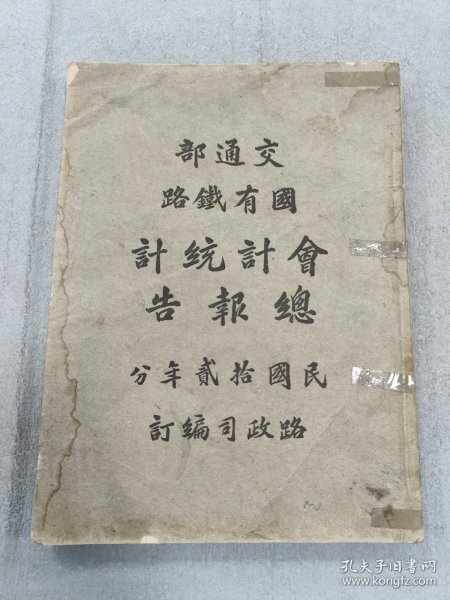 交通部
國有鐵路
會計統計
總報告
民國拾貳年分
路政司編訂
孔夫子旧书网
www.kongfz.com